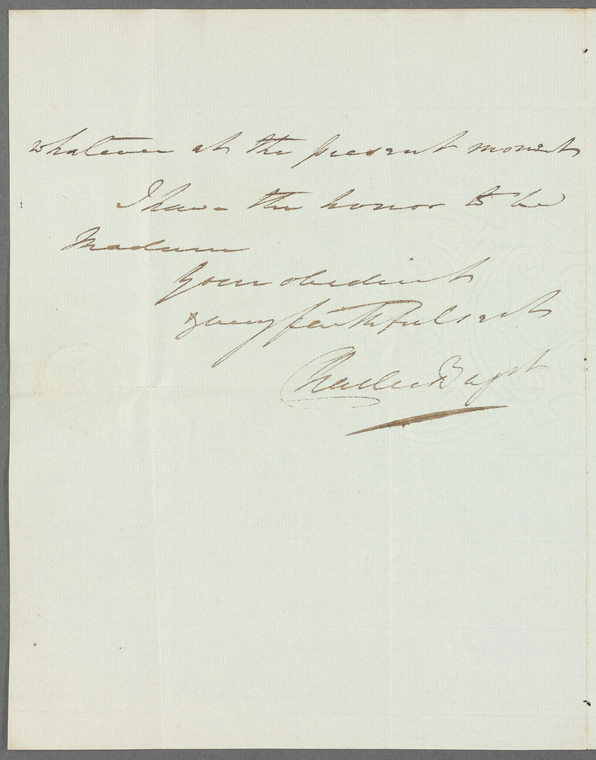 whatever at the present moment
I have the honor to be
Madam
Your obedient
& very faithful svt
Charles Bagot